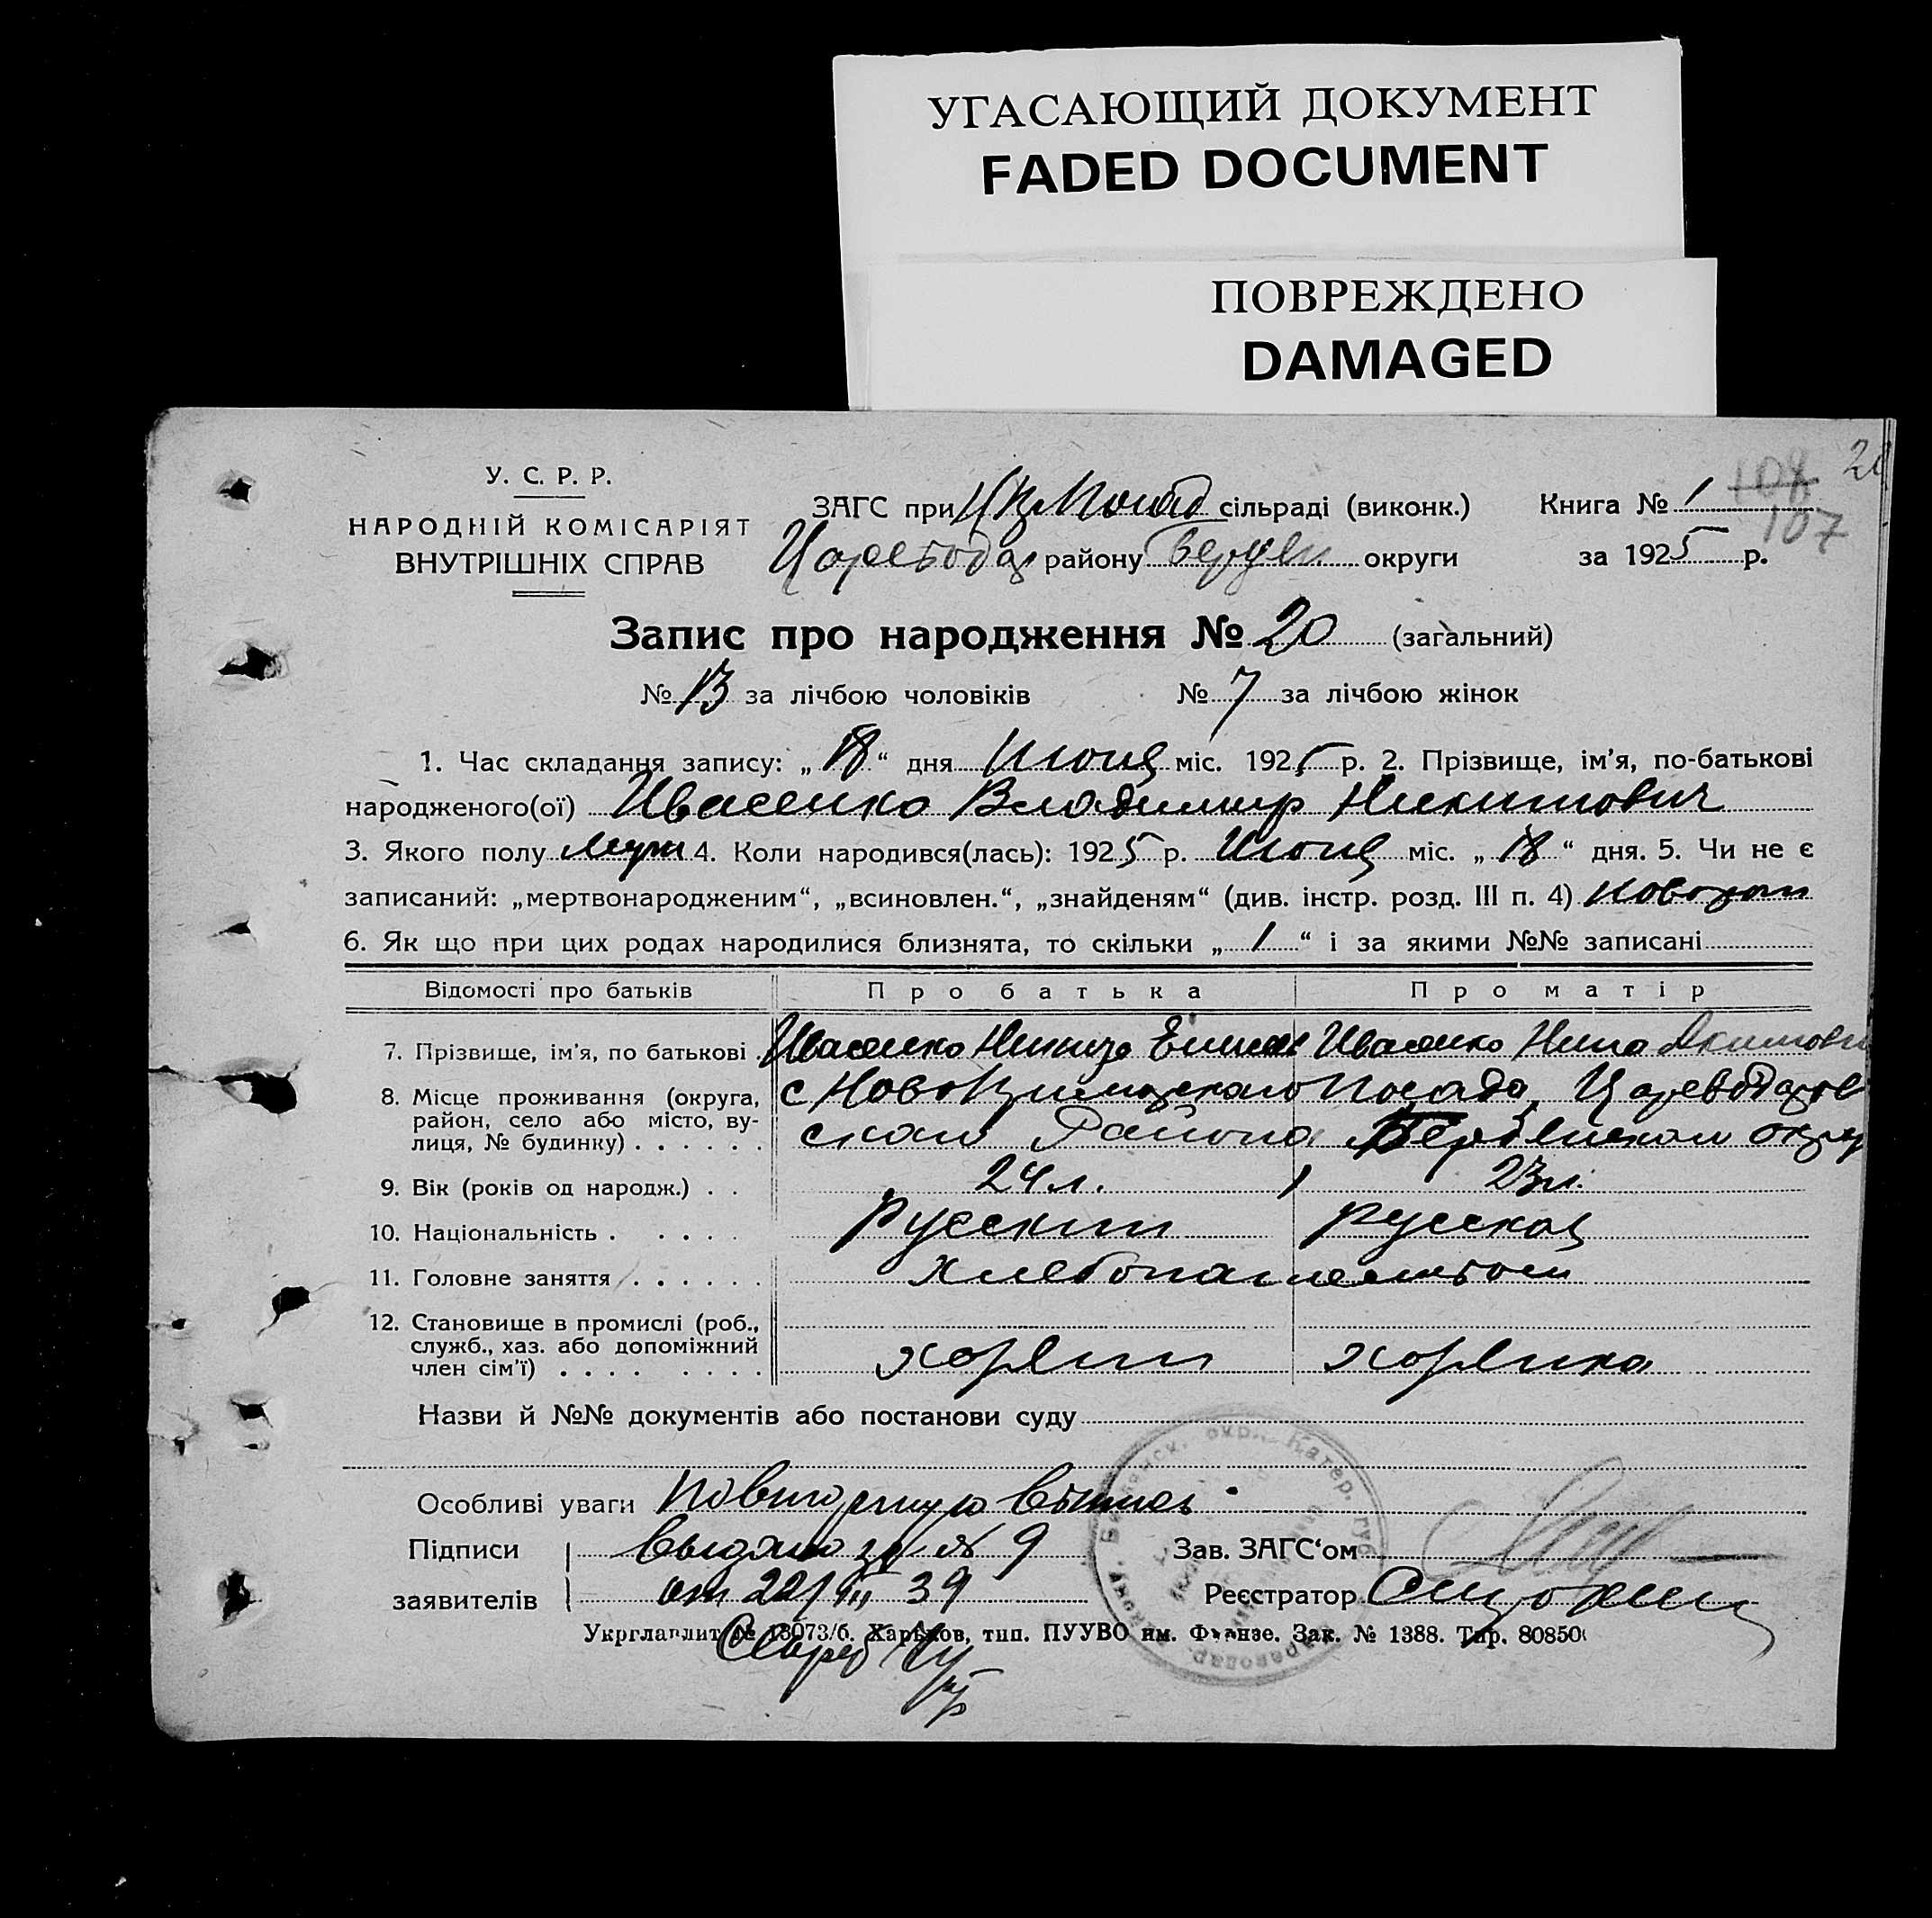 УГАСАЮЩИЙ ДОКУМЕНТ
FADED DOCUMENT
ПОВРЕЖДЕНО
DAMAGED
У. С. Р. Р.
НАРОДНІЙ КОМІСАРІЯТ
ВНУТРІШНІХ СПРАВ
ЗАГС при сільраді (виконк.)
району округи
Книга № 1
108
107
за 1925 р.
Запис про народження № 20 (загальний)
№ 13 за лічбою чоловіків № 7 за лічбою жінок
1. Час складання запису: „18“ дня Июня міс. 1925 р. 2. Прізвище, ім’я, по-батькові
народженого(ої) Ивасенко Владимир Никитович
3. Якого полу муж 4. Коли народився(лась): 1925 р. Июня міс. „18“ дня. 5. Чи не є
записаний: „мертвонародженим“, „всиновлен.“, „знайденям“ (див. інстр. розд. III п. 4)
6. Як що при цих родах народилися близнята, то скільки „1“ і за якими №№ записані
Відомості про батьків Про батька Про матір
7. Прізвище, ім’я, по батькові Ивасенко Никита Ивасенко Нина Якимовн
8. Місце проживання (округа, с Посада Царевода
район, село або місто, ву-
лиця, № будинку) скаго Района Бердянскаго округ
9. Вік (років од народж.) 24 л. 23 л.
10. Національність русский русская
11. Головне заняття Хлебопашеством
12. Становище в промислі (роб.,
служб., хаз. або допоміжний
член сім’ї) хозяин хозяйка
Назви й №№ документів або постанови суду
Особливі уваги Повторную выпись
Підписи выдано за № 9 Зав. ЗАГС‘ом
заявителів от 22/III 39 Реєстратор
Укрглавлит № 13073/б. Харьков, тип. ПУУВО им. Фрунзе. Зак. № 1388. Тир. 80850